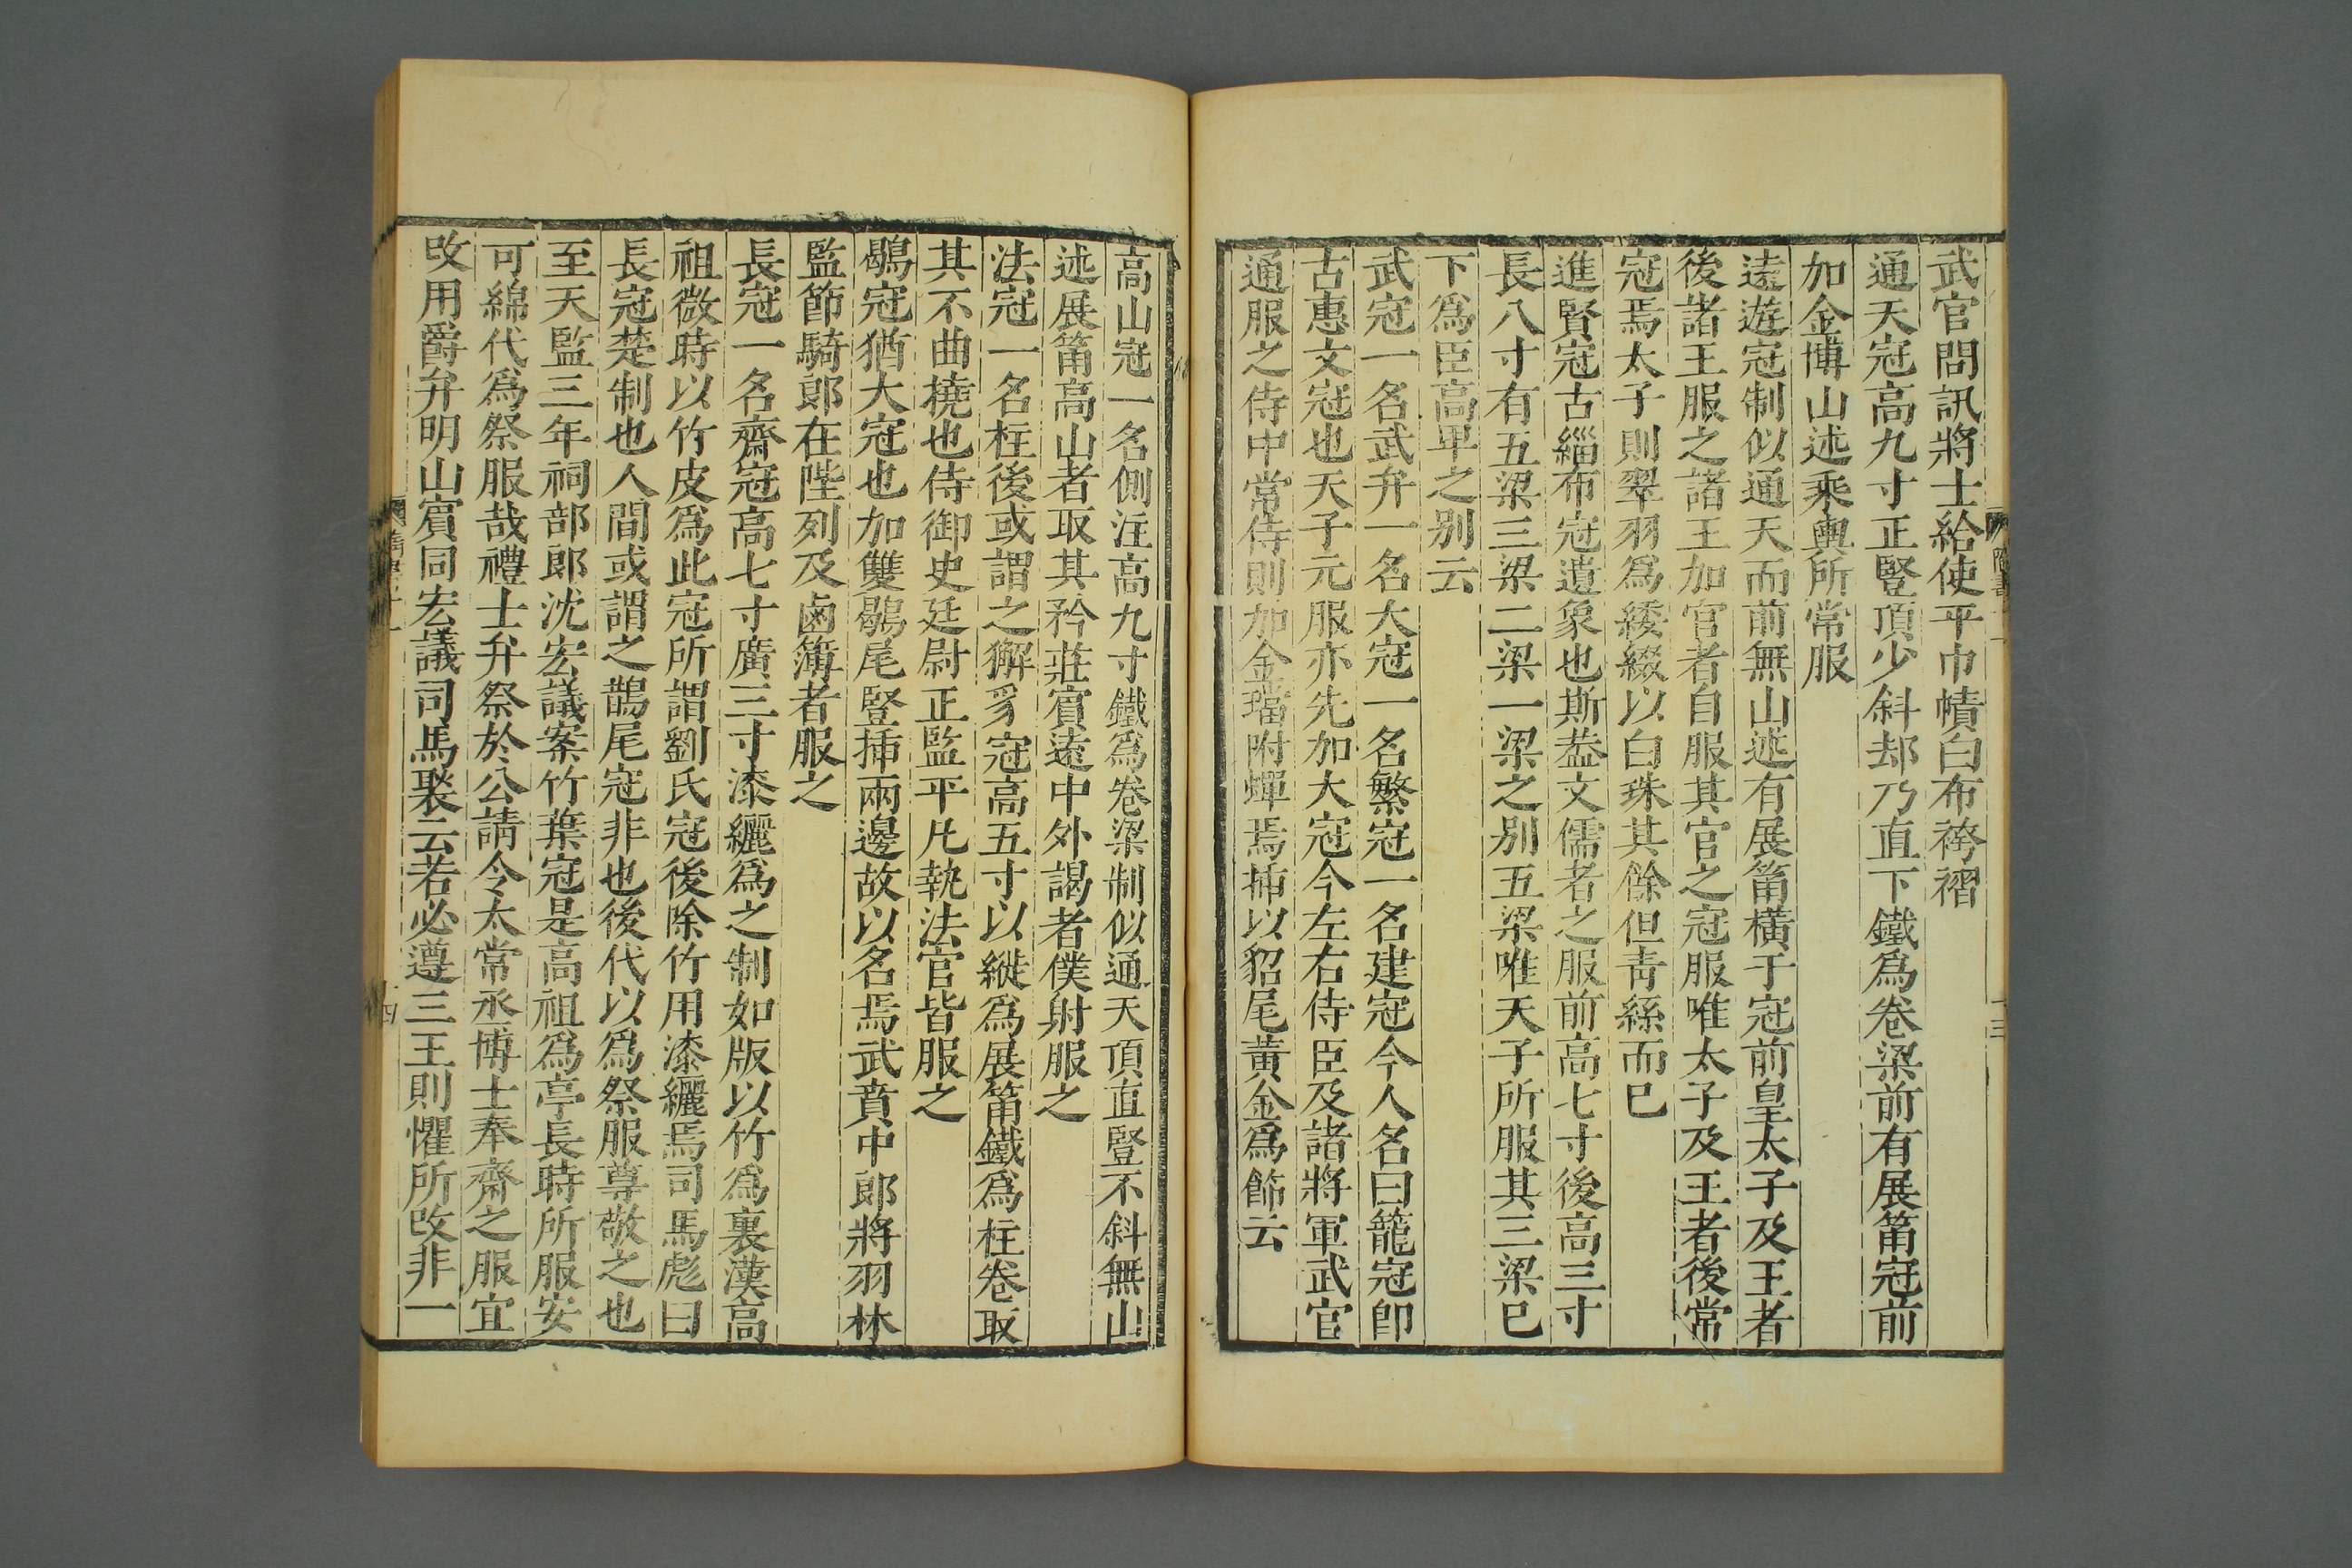 武官問訊將士給使平巾幘白布袴褶
通天冠高九寸正竪頂少斜却乃直下鐵爲卷梁前有展筩冠前
加金博山述乘輿所常服
遠遊冠制似通天而前無山述有展筩橫于冠前皇太子及王者
後諸王服之諸王加官者自服其官之冠服唯太子及王者後常
冠焉太子則翠羽爲緌綴以白珠其餘但青絲而已
進賢冠古緇布冠遺象也斯葢文儒者之服前高七寸後高三寸
長八寸有五梁三梁二梁一梁之别五梁唯天子所服其三梁已
下爲臣高卑之别云
武冠一名武弁一名大冠一名繁冠一名建冠今人名曰籠冠卽
古惠文冠也天子元服亦先加大冠今左右侍臣及諸將軍武官
通服之侍中常侍則加金璫附蟬焉揷以貂尾黄金爲飾云
高山冠一名側注高九寸鐵爲卷梁制似通天頂直竪不斜無山
述展筩高山者取其矜莊賔遠中外謁者僕射服之
法冠一名柱後或謂之獬豸冠高五寸以縱爲展筩鐵爲柱卷取
其不曲撓也侍御史廷尉正監平凡執法官皆服之
鶡冠猶大冠也加雙鶡尾竪揷兩邊故以名焉武賁中郎將羽林
監節騎郎在陛列及鹵簿者服之
長冠一名齋冠高七寸廣三寸漆纚爲之制如版以竹爲裏漢高
祖微時以竹皮爲此冠所謂劉氏冠後除竹用漆纚焉司馬彪曰
長冠楚制也人間或謂之鵲尾冠非也後代以爲祭服尊敬之也
至天監三年祠部郎沈宏議案竹葉冠是高祖爲亭長時所服安
可綿代爲祭服哉禮士弁祭於公請令太常丞博士奉齋之服宜
改用爵弁明山賔同宏議司馬褧云若必遵三王則懼所改非一